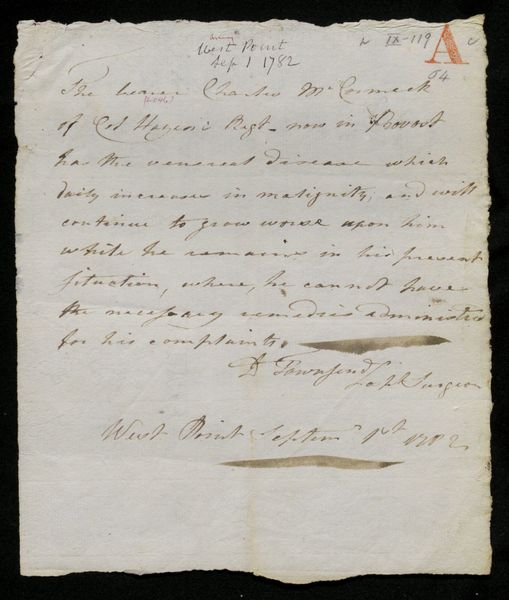 West Point
Sep 1 1782
IX-119
A
The bearer Charles McCormeck
of Col Hazen's Regt now in Provost
has the venereal disease which
daily increases in malignity, and will
continue to grow worse upon him
while he remains in his present
situation, where, he cannot have
the necessary remedies administ
for his complaints.
D Townsend Surgeon
West Point Septemr 1st 1782